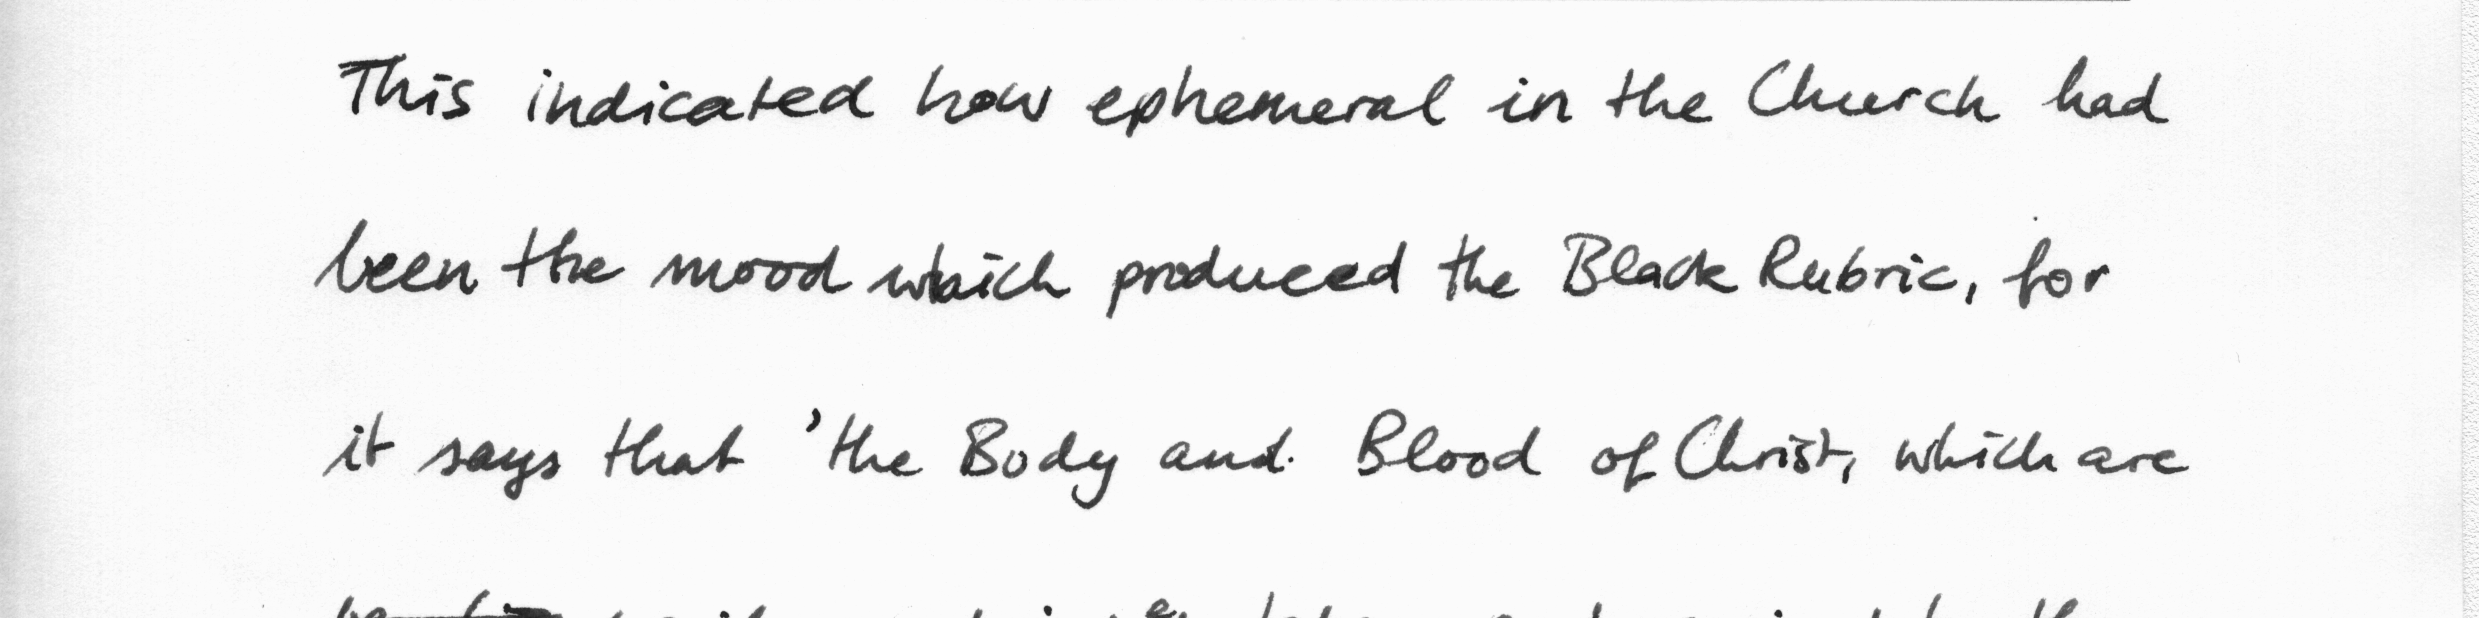 This indicated how ephemeral in the Church had
been the mood which produced the Black Rubric, for
it says that 'the Body and Blood of Christ, which are